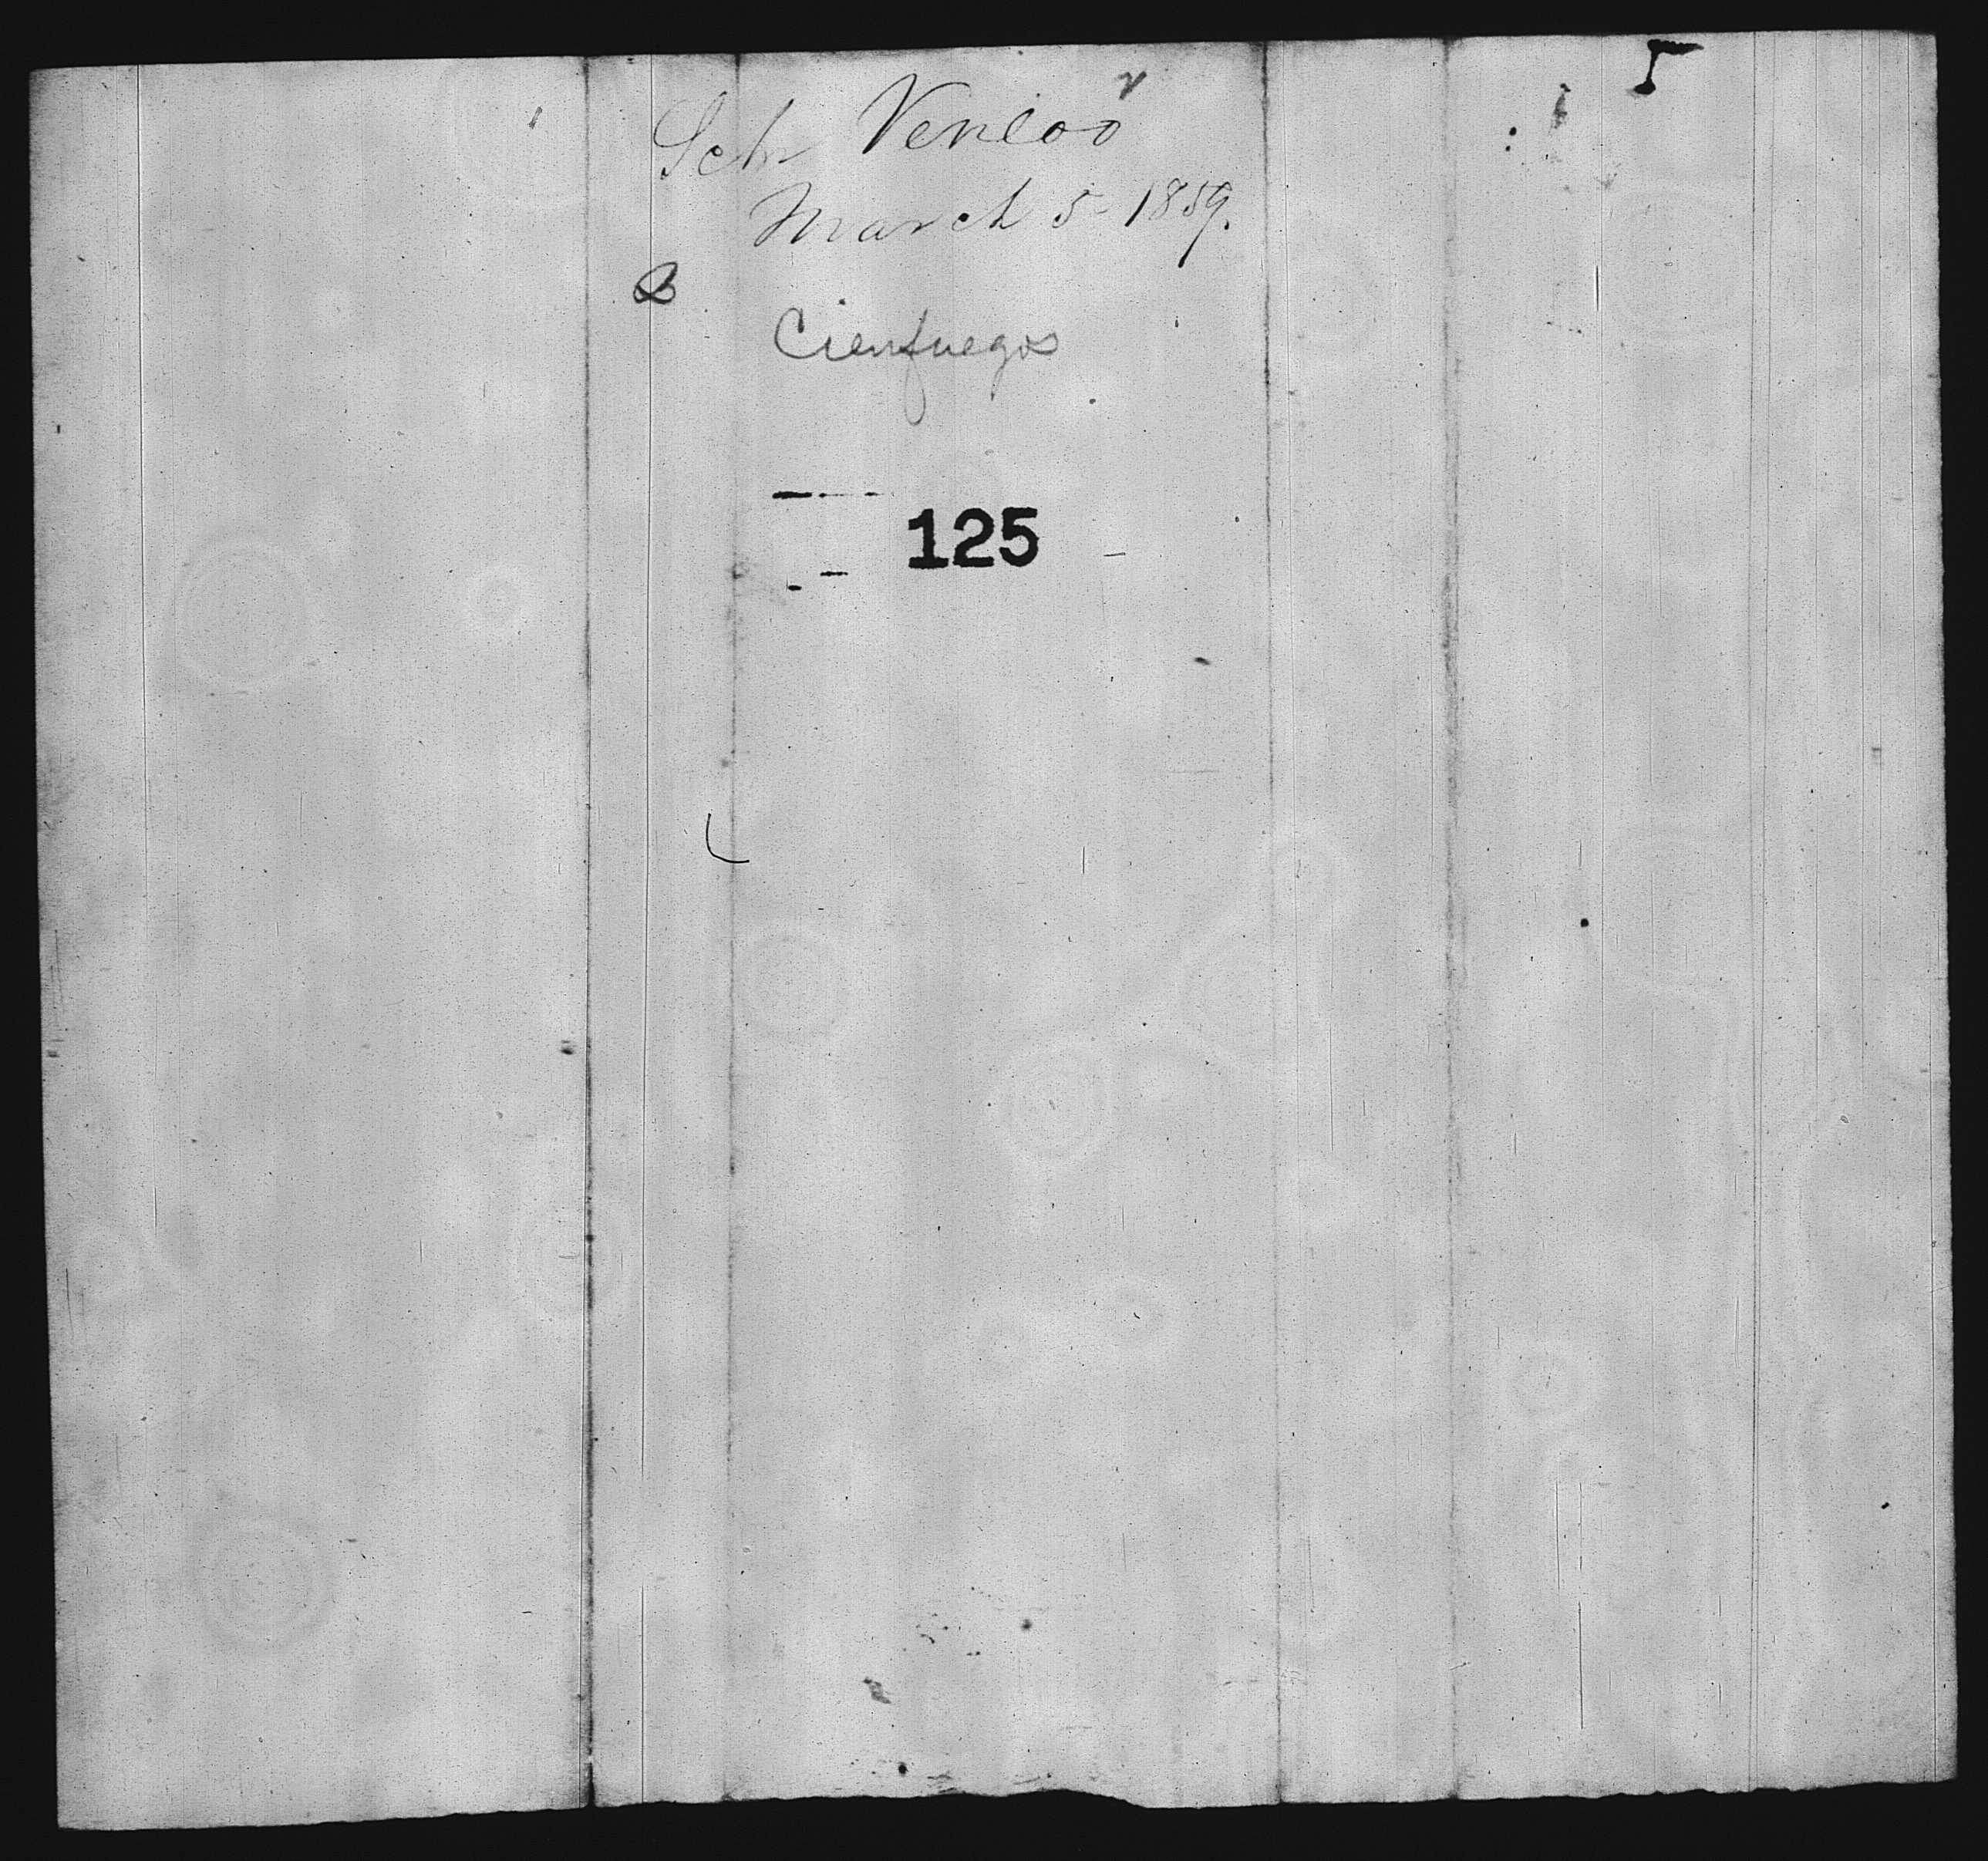 Sch Venloo
March 5 1859.
B
Cienfuegos
125